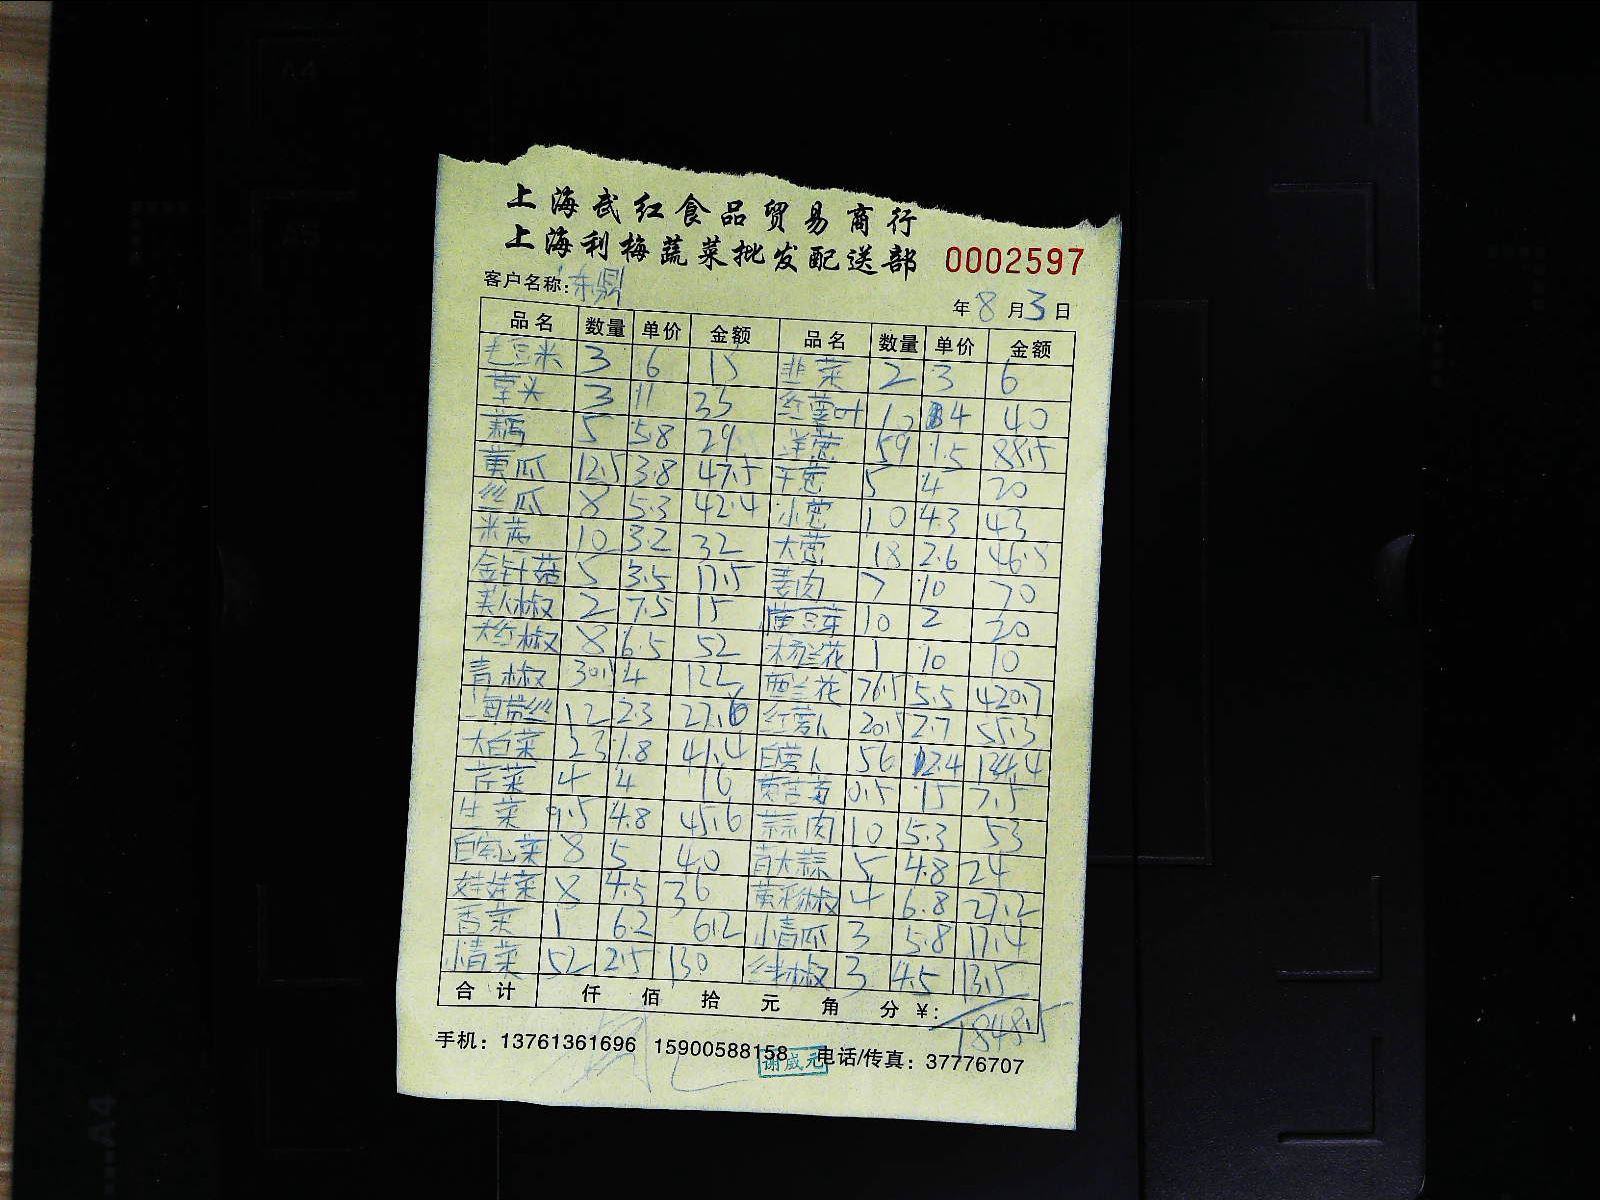 上海武红食品贸易商行
上海利梅蔬菜批发配送部 0002597
客户名称: 东鼎 年 8 月 3 日
品名 数量 单价 金额 品名 数量 单价 金额
毛豆米 3 6 15 韭菜 2 3 6
草头 3 11 33 红薯叶 10 4 40
藕 5 5.8 29 洋葱 59 1.5 88.5
黄瓜 12.5 3.8 47.5 干葱 5 4 20
丝瓜 8 5.3 42.4 小葱 10 4.3 43
米茄 10 3.2 32 大葱 18 2.6 46.8
金针菇 5 3.5 17.5 姜肉 7 10 70
美人椒 2 7.5 15 黄豆芽 10 2 20
大红椒 8 6.5 52 杨兰花 1 10 10
青椒 30.5 4 122 西兰花 76.5 5.5 420.7
海带丝 12 2.3 27.6 红萝卜 20.5 2.7 55.3
大白菜 23 1.8 41.4 白萝卜 56 2.4 134.4
芹菜 4 4 16 黄苦菊 0.5 15 7.5
生菜 9.5 4.8 45.6 蒜肉 10 5.3 53
8 5 40 青大蒜 5 4.8 24
娃娃菜 8 4.5 36 黄彩椒 4 6.8 27.2
香菜 1 6.2 6.2 小青瓜 3 5.8 17.4
小青菜 52 2.5 130 线椒 3 4.5 13.5
合计 仟 佰 拾 元 角 分 ¥: 1848.5
手机: 13761361696 15900588158 电话/传真: 37776707
谢威元